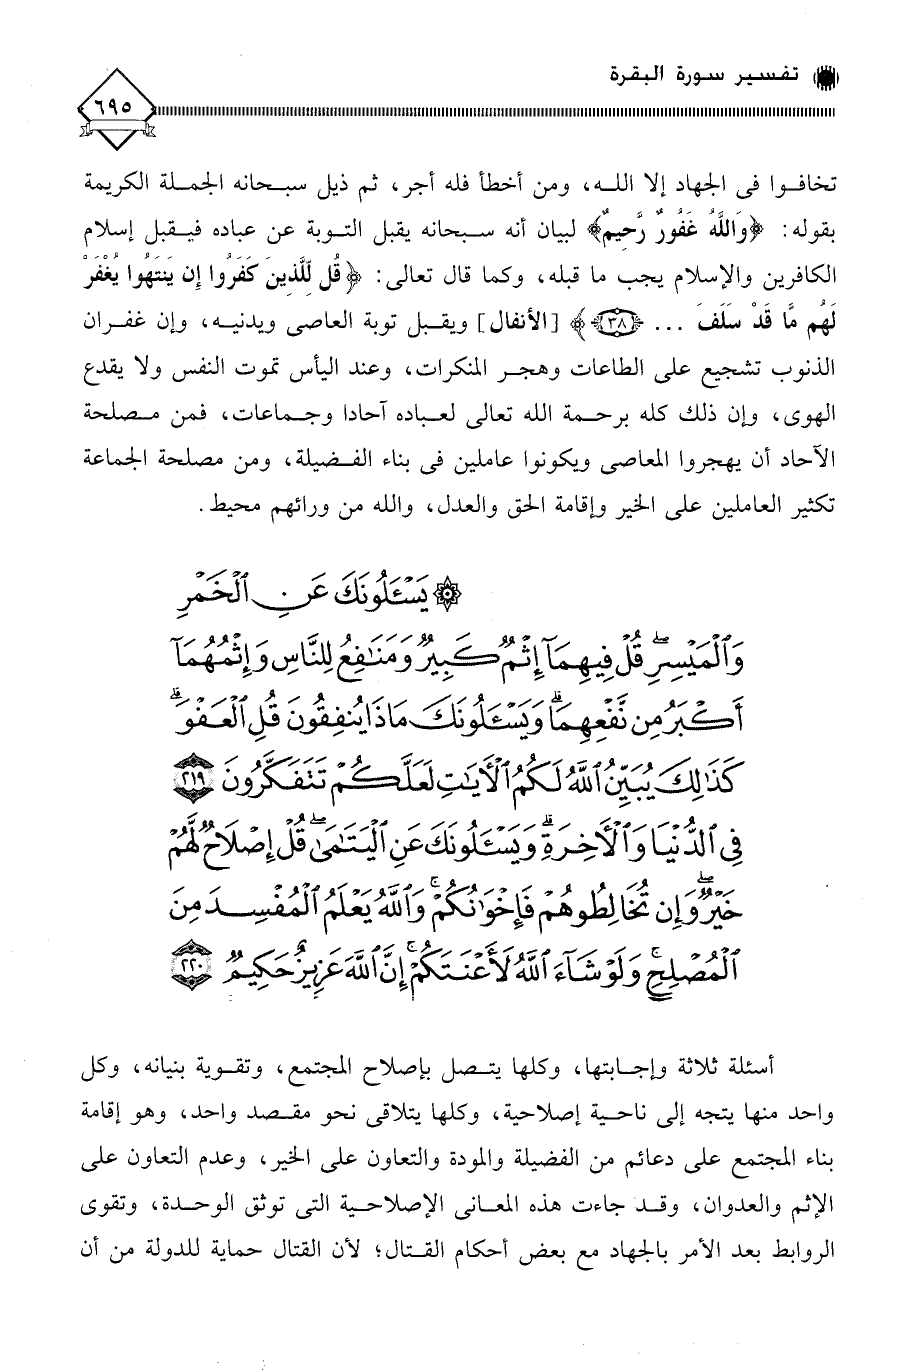 تفسير سورة البقرة
٦٩٥
تخافوا فى الجهاد إلا الله، ومن أخطأ فله أجر، ثم ذيل سبحانه الجملة الكريمة
بقوله: ﴿وَاللَّهُ غَفُورٌ رَّحِيمٌ﴾ لبيان أنه سبحانه يقبل التوبة عن عباده فيقبل إسلام
الكافرين والإسلام يجب ما قبله، وكما قال تعالى: ﴿قُل لِّلَّذِينَ كَفَرُوا إِن يَنتَهُوا يُغْفَرْ
لَهُم مَّا قَدْ سَلَفَ ... ﴿٣٨﴾﴾ [الأنفال] ويقبل توبة العاصى ويدنيه، وإن غفران
الذنوب تشجيع على الطاعات وهجر المنكرات، وعند اليأس تموت النفس ولا يقدع
الهوى، وإن ذلك كله برحمة الله تعالى لعباده آحادا وجماعات، فمن مصلحة
الآحاد أن يهجروا المعاصى ويكونوا عاملين فى بناء الفضيلة، ومن مصلحة الجماعة
تكثير العاملين على الخير وإقامة الحق والعدل، والله من ورائهم محيط.
۞ يَسْـَٔلُونَكَ عَنِ ٱلْخَمْرِ
وَٱلْمَيْسِرِۖ قُلْ فِيهِمَآ إِثْمٌ كَبِيرٌ وَمَنَٰفِعُ لِلنَّاسِ وَإِثْمُهُمَآ
أَكْبَرُ مِن نَّفْعِهِمَاۗ وَيَسْـَٔلُونَكَ مَاذَا يُنفِقُونَ قُلِ ٱلْعَفْوَۗ
كَذَٰلِكَ يُبَيِّنُ ٱللَّهُ لَكُمُ ٱلْأَيَٰتِ لَعَلَّكُمْ تَتَفَكَّرُونَ ٢١٩
فِى ٱلدُّنْيَا وَٱلْأَخِرَةِۗ وَيَسْـَٔلُونَكَ عَنِ ٱلْيَتَٰمَىٰۖ قُلْ إِصْلَاحٌ لَّهُمْ
خَيْرٌۖ وَإِن تُخَالِطُوهُمْ فَإِخْوَٰنُكُمْۚ وَٱللَّهُ يَعْلَمُ ٱلْمُفْسِدَ مِنَ
ٱلْمُصْلِحِۚ وَلَوْ شَآءَ ٱللَّهُ لَأَعْنَتَكُمْۚ إِنَّ ٱللَّهَ عَزِيزٌ حَكِيمٌ ٢٢٠
أسئلة ثلاثة وإجابتها، وكلها يتصل بإصلاح المجتمع، وتقوية بنيانه، وكل
واحد منها يتجه إلى ناحية إصلاحية، وكلها يتلاقى نحو مقصد واحد، وهو إقامة
بناء المجتمع على دعائم من الفضيلة والمودة والتعاون على الخير، وعدم التعاون على
الإثم والعدوان، وقد جاءت هذه المعانى الإصلاحية التى توثق الوحدة، وتقوى
الروابط بعد الأمر بالجهاد مع بعض أحكام القتال؛ لأن القتال حماية للدولة من أن